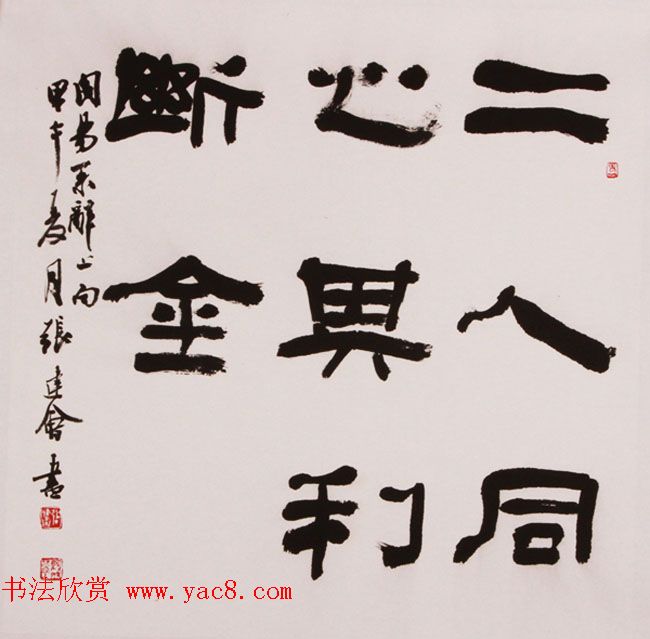 二人同
心其利
斷金
周易系辭上句
甲午夏月張建會書
书法欣赏 www.yac8.com